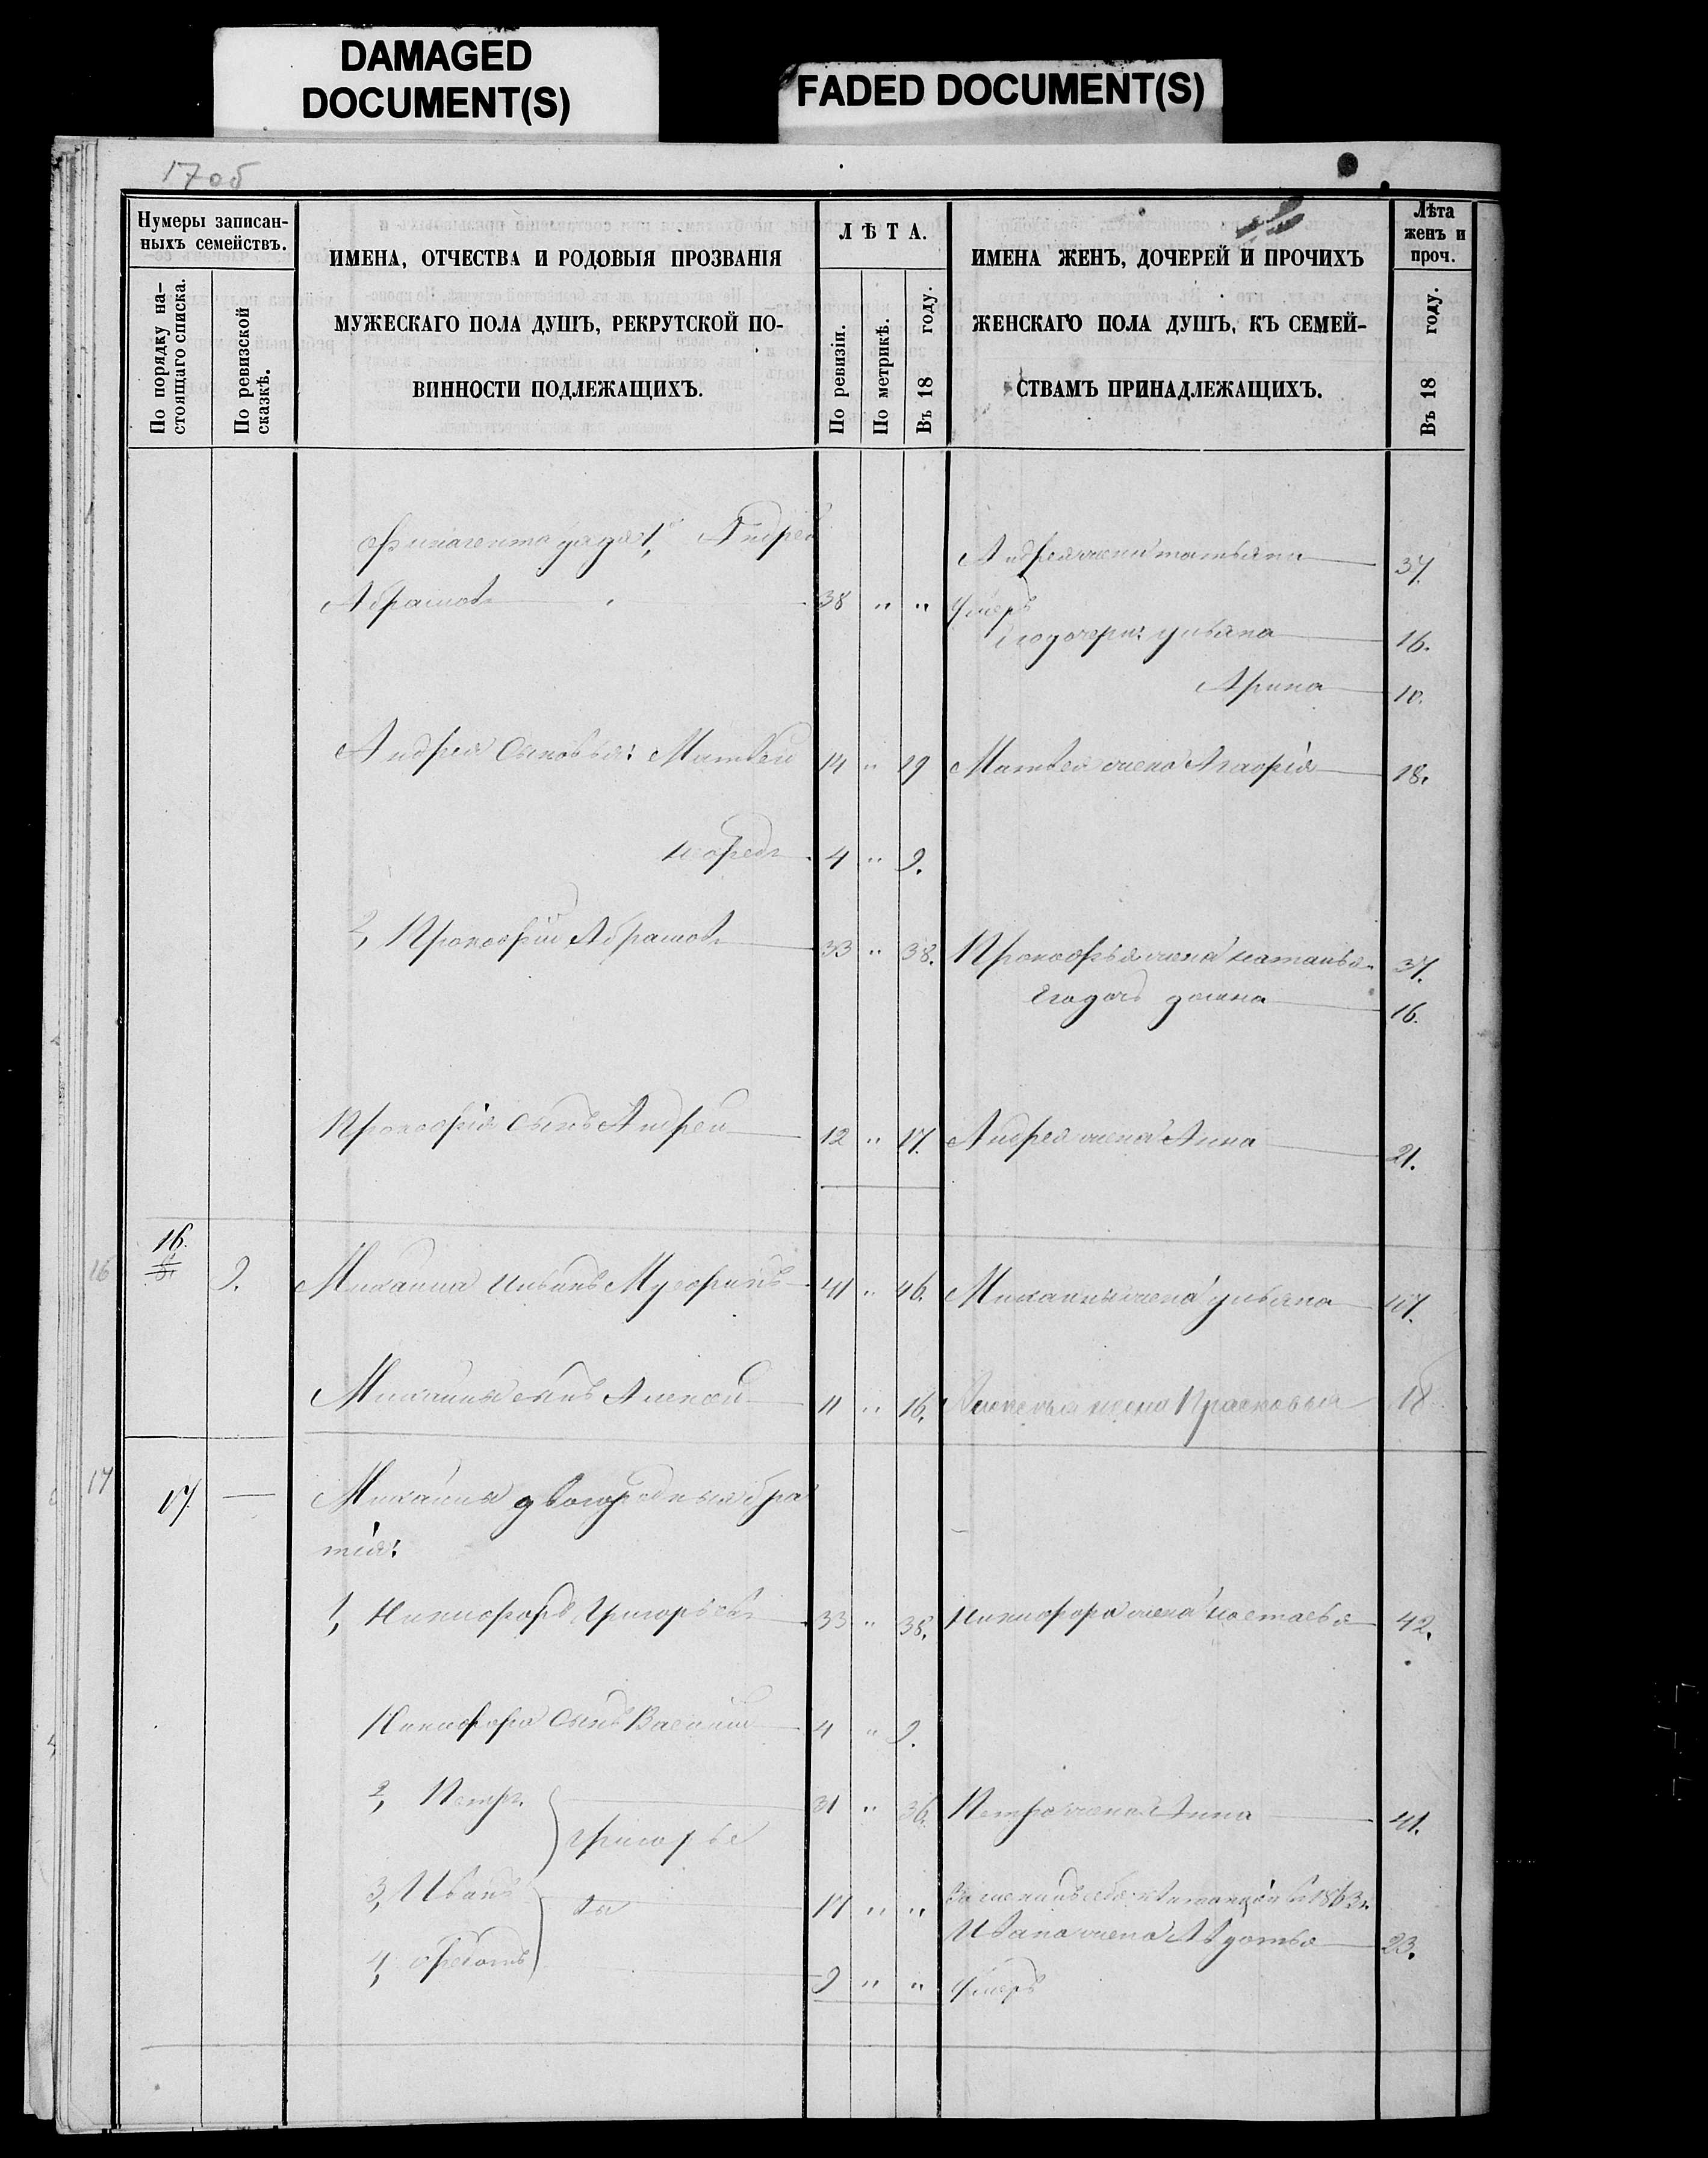 DAMAGED
DOCUMENT(S)
FADED DOCUMENT(S)
17 об
Нумеры записан-
ныхъ семействъ.
По порядку на-
стоящаго списка.
По ревизской
сказкѣ.
ИМЕНА, ОТЧЕСТВА И РОДОВЫЯ ПРОЗВАНІЯ
МУЖЕСКАГО ПОЛА ДУШЪ, РЕКРУТСКОЙ ПО-
ВИННОСТИ ПОДЛЕЖАЩИХЪ.
ЛѢТА.
По ревизіи.
По метрикѣ.
Въ 18 году.
ИМЕНА ЖЕНЪ, ДОЧЕРЕЙ И ПРОЧИХЪ
ЖЕНСКАГО ПОЛА ДУШЪ, КЪ СЕМЕЙ-
СТВАМЪ ПРИНАДЛЕЖАЩИХЪ.
Лѣта
женъ и
проч.
Въ 18 году.
дядя 1, Андрей
Андрея жена татьяна 37.
Абрамовъ 38 " " умеръ
его дочери: ульяна 16.
Арина 10.
Андрея Сыновья: Матвей 14 " 19 Матвея жена 18.
4 " 9.
2, Прокофій Абрамовъ 33 " 38. Прокофья жена наталья 37.
Его дочь домна 16.
Прокофія Сынъ Андрей 12 " 17. Андрея жена Анна 21.
16 16. 9. Михаила 41 " 46. Михаилы жена ульяна 47.
Михаилы сынъ Алексей 11 " 16. Алексея жена Прасковья 18
17 17. — Михаилы двоюродныя бра
тья:
1, Никифоръ Григорьевъ 33 " 38. Никифора жена настасья 42.
Никифора Сынъ Василий 4 " 9.
2, Петръ 31 " 36. Петра жена Анна 41.
Григорье
3, Иванъ 17 " " въ 1863 г.
вы
Ивана жена Авдотья 23.
4, Федотъ 9 " " умеръ